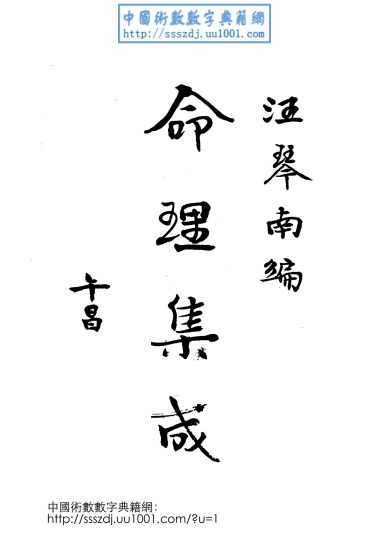 中國術數數字典籍網
http://ssszdj.uu1001.com/
汪琴南编
命理集成
午昌
中國術數數字典籍網:
http://ssszdj.uu1001.com/?u=1